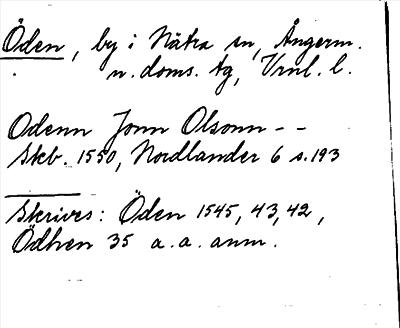 Öden, by i Nätra sn, Ångerm.
n. doms. tg, Vrnl. l.
Odenn Jonn Olsonn - -
Skb. 1550, Nordlander 6 s. 193
Skrives: Öden 1545, 43, 42,
Ödhen 35 a. a. anm.